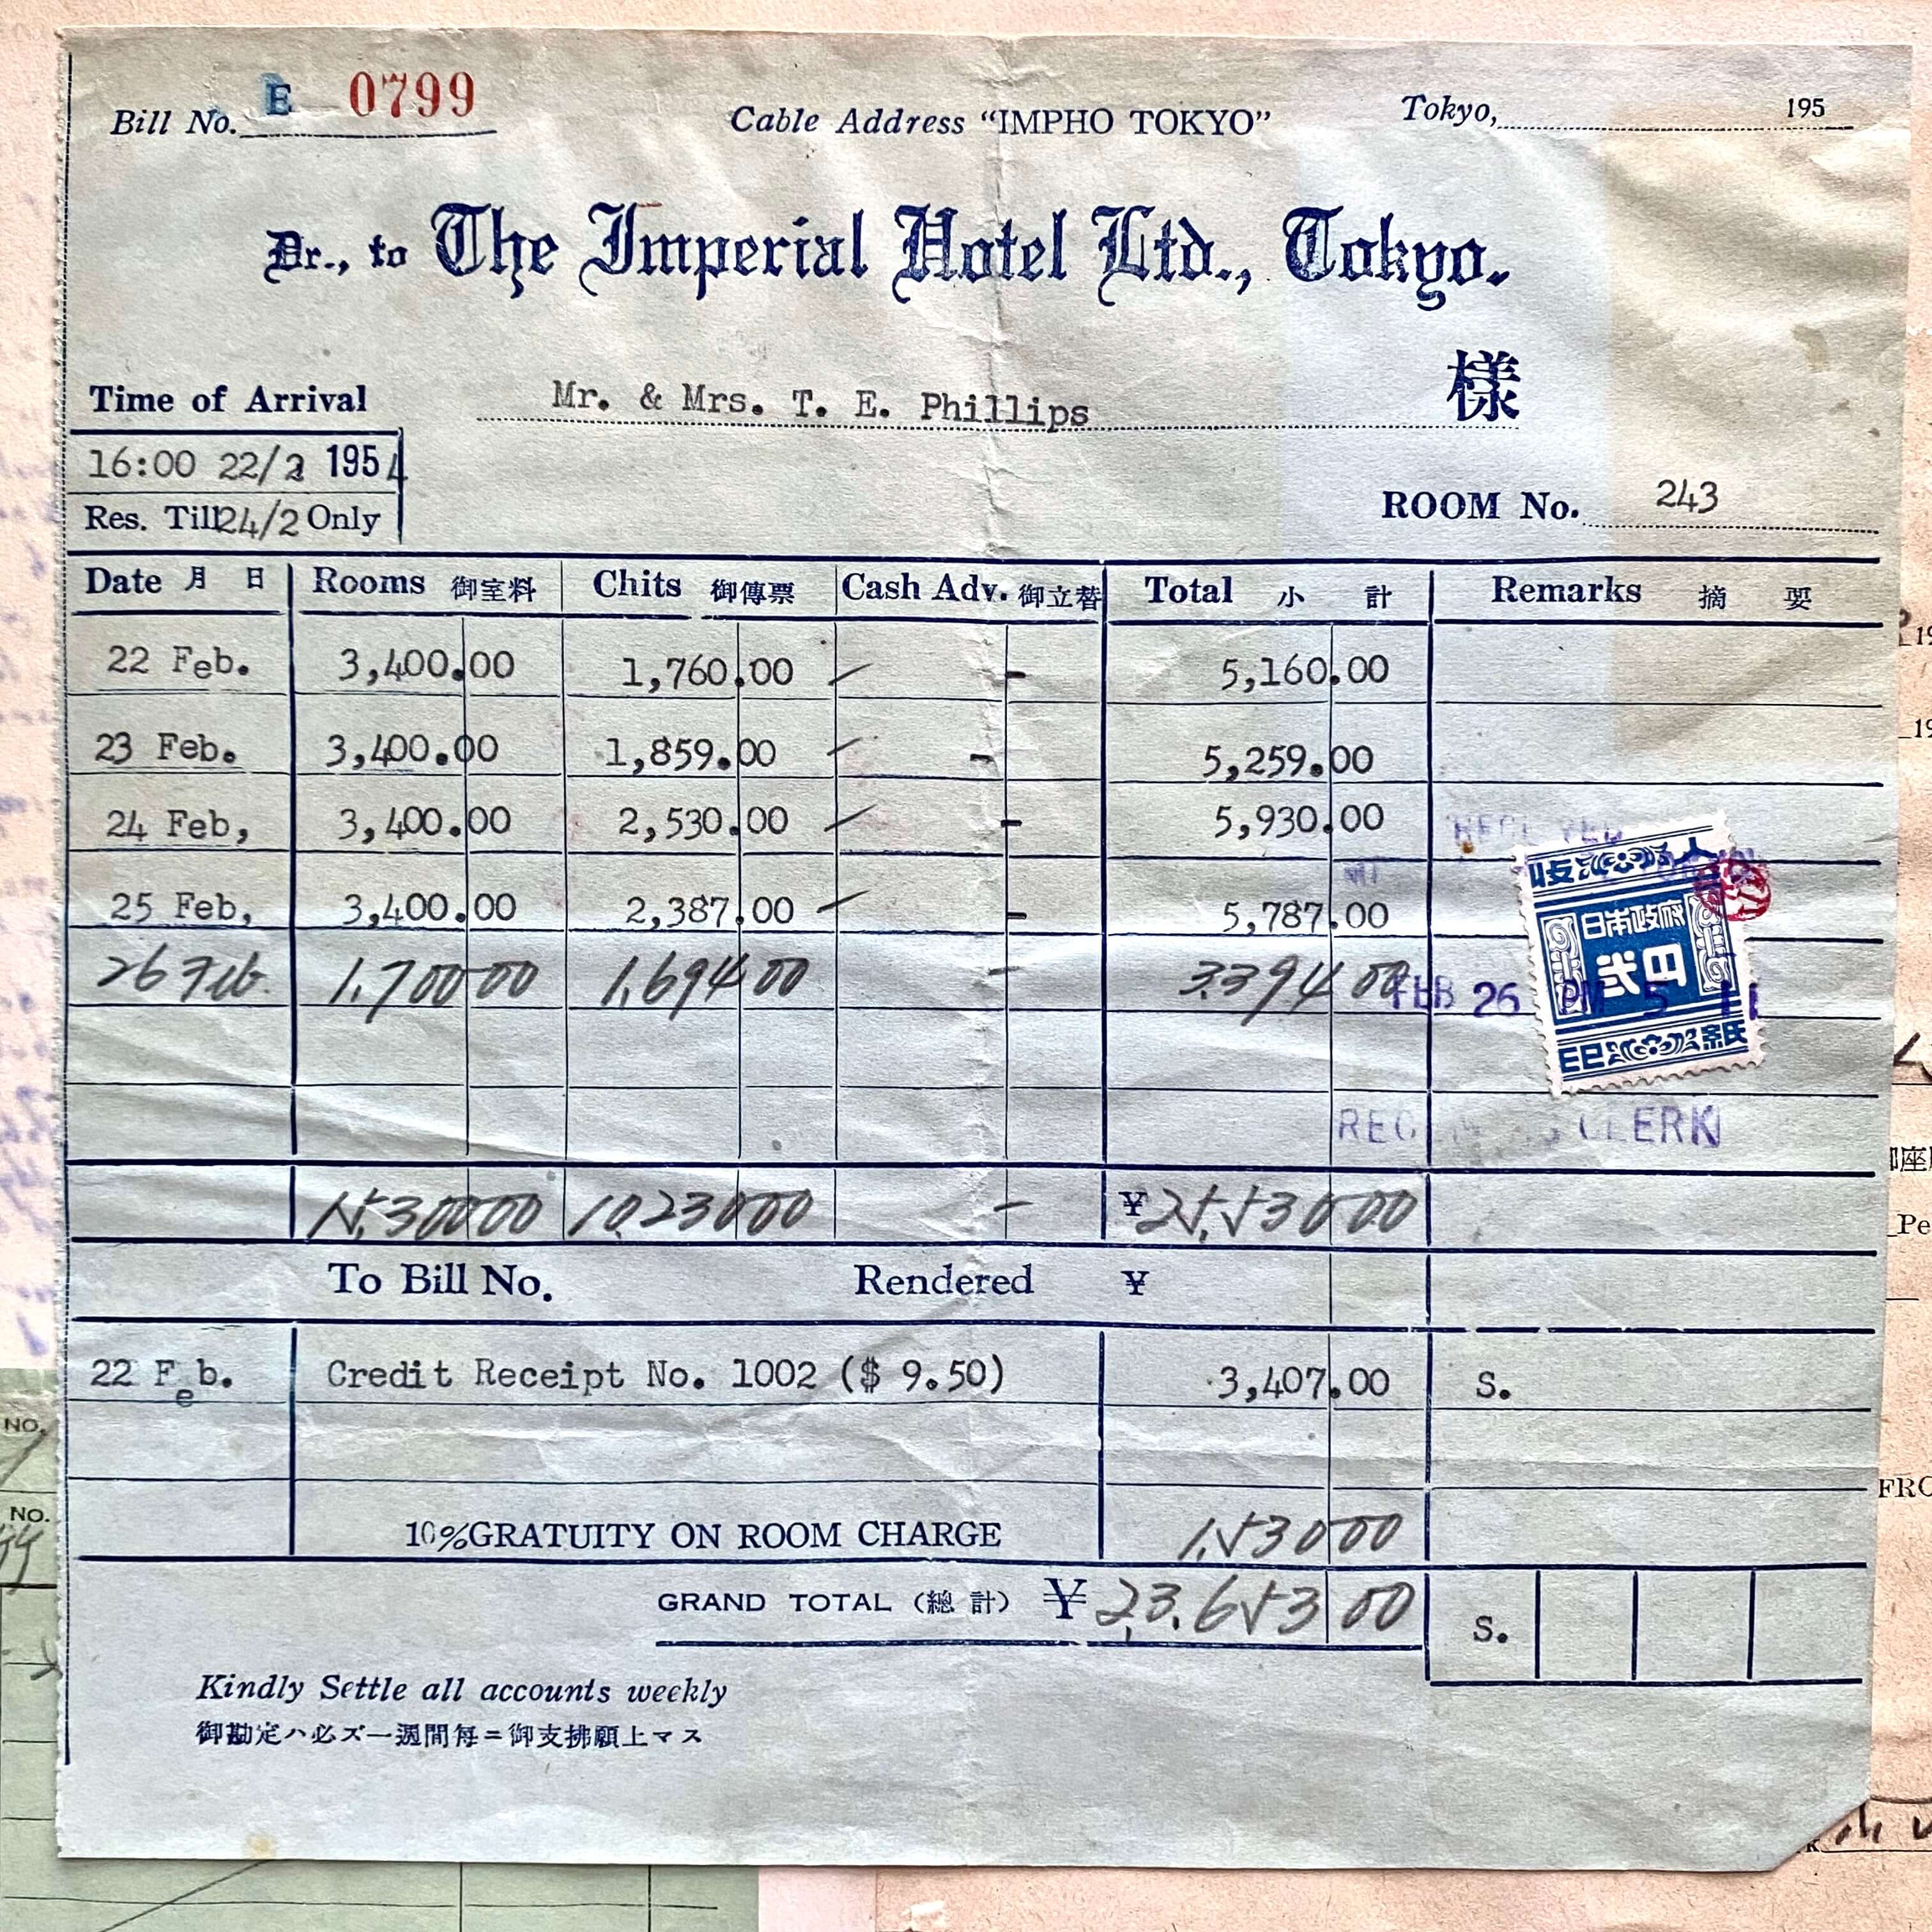 Bill No. E 0799 Cable Address “IMPHO TOKYO” Tokyo, 195
Dr., to The Imperial Hotel Ltd., Tokyo.
Time of Arrival Mr. & Mrs. T. E. Phillips 様
16:00 22/2 1954
Res. Till 24/2 Only ROOM No. 243
Date 月 日 Rooms 御室料 Chits 御傳票 Cash Adv. 御立替 Total 小 計 Remarks 摘 要
22 Feb. 3,400.00 1,760.00 - 5,160.00
23 Feb. 3,400.00 1,859.00 - 5,259.00
24 Feb, 3,400.00 2,530.00 - 5,930.00
25 Feb, 3,400.00 2,387.00 - 5,787.00
26 Feb. 1,700 00 1,694 00 - 3,394 00
収 入
日本政府
弐円
FEB 26 PM 5 11
印 紙
CLERK
15,300 00 10,230 00 - ¥ 25,530 00
To Bill No. Rendered ¥
22 Feb. Credit Receipt No. 1002 ($ 9.50) 3,407.00 S.
10%GRATUITY ON ROOM CHARGE 1,530 00
GRAND TOTAL (總 計) ¥ 23,653 00 S.
Kindly Settle all accounts weekly
御勘定ハ必ズ一週間每ニ御支拂願上マス
NO.
NO.
FRO